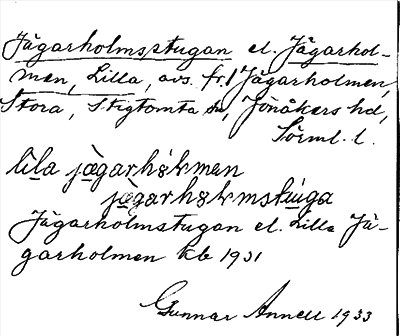 Jägarholmsstugan el. Jägarhol-
men, Lilla, avs. fr. Jägarholmen,
Stora, Stigtomta sn, Jönåkers hd,
Sörml. l.
lila jägarhɷlmen
jägarhɷlmstuga
Jägarholmstugan el. Lilla Jä-
garholmen kb 1931
Gunnar Annell 1933